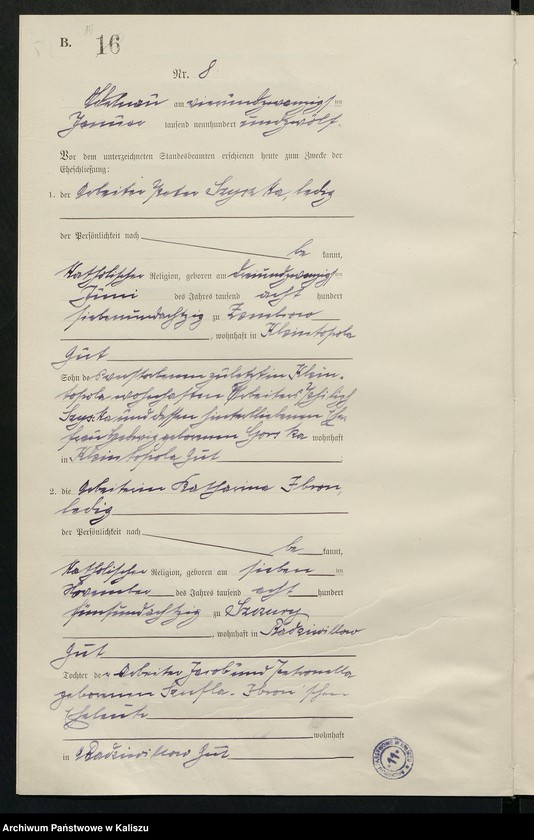 B. 16
Nr. 8
Adelnau am vierundzwanzigsten
Januar tausend neunhundert undzwölf.
Vor dem unterzeichneten Standesbeamten erschienen heute zum Zwecke der
Eheschließung:
1. der Arbeiter Peter ledig
der Persönlichkeit nach
be kannt,
katholischer Religion, geboren am
Juni des Jahres tausend acht hundert
siebenundachtzig zu
, wohnhaft in Kleintopola
Gut
Sohn des verstorbenen zuletzt in Klein-
topola wohnhaften Arbeiters
und dessen hinterbliebenen Ehe-
frau Hedwig geborenen wohnhaft
in Kleintopola Gut
2. die Arbeiterin Katharina
ledig
der Persönlichkeit nach
be kannt,
katholischer Religion, geboren am sieben ten
November des Jahres tausend acht hundert
fünfundachtzig zu
, wohnhaft in Radziwillow
Gut
Tochter der Arbeiter Jacob und Petronella
geborenen schen
Eheleute
wohnhaft
in Radziwillow Gut
11
Archiwum Państwowe w Kaliszu